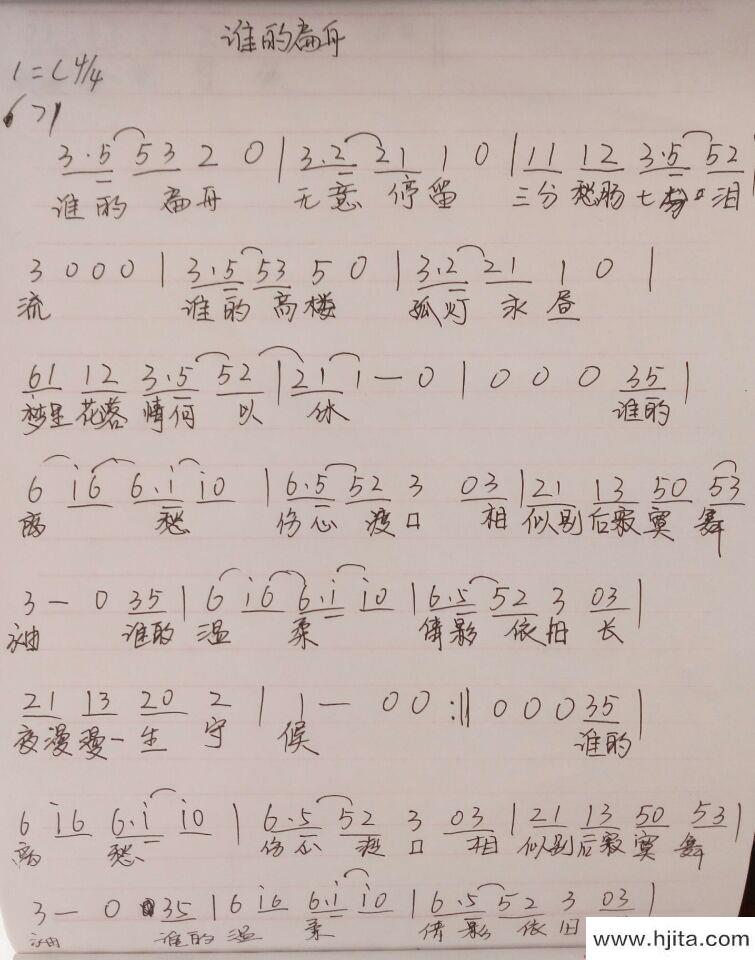 谁的扁舟
1=C 4/4
6 > 1
3·5 53 2 0 | 3·2 21 1 0 | 11 12 3·5 52 |
谁的 扁舟 无意 停留 三分愁肠七分 泪
3 0 0 0 | 3·5 53 5 0 | 3·2 21 1 0 |
流 谁的高楼 孤灯 永昼
61 12 3·5 52 | 21 1 — 0 | 0 0 0 35 |
梦里花落情何 以 休 谁的
6 i6 6·i i0 | 6·5 52 3 03 | 21 13 50 53
离 愁 伤心 渡口 相 似别后寂寞 舞
3 — 0 35 | 6 i6 6·i i0 | 6·5 52 3 03 |
袖 谁的 温 柔 倩影 依旧 长
21 13 20 2 | 1 — 0 0 :‖ 0 0 0 35 |
夜漫漫一生 守 候 谁的
6 i6 6·i i0 | 6·5 52 3 03 | 21 13 50 53 |
离 愁 伤心 渡 口 相 似别后寂寞 舞
3 — 0 35 | 6 i6 6·i i0 | 6·5 52 3 03 |
袖 谁的温 柔 倩影 依旧
www.hjita.com